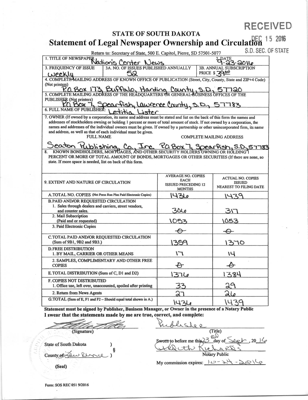 RECEIVED
DEC 15 2016
S.D. SEC. OF STATE
STATE OF SOUTH DAKOTA
Statement of Legal Newspaper Ownership and Circulation
Return to: Secretary of State, 500 E. Capitol, Pierre, SD 57501-5077
1. TITLE OF NEWSPAPER Nation's Center News
2. DATE 9-23-2016
3. FREQUENCY OF ISSUE weekly
3A. NO. OF ISSUES PUBLISHED ANNUALLY 52
3B. ANNUAL SUBSCRIPTION PRICE $
4. COMPLETE MAILING ADDRESS OF KNOWN OFFICE OF PUBLICATION (Street, City, County, State and ZIP+4 Code) (Not printer)
PO Box 173 Buffalo, Harding County, S.D., 57720
5. COMPLETE MAILING ADDRESS OF THE HEADQUARTERS OR GENERAL BUSINESS OFFICES OF THE PUBLISHER (Not printer)
PO Box 7, Spearfish, Lawrence County, S.D., 57783
6. FULL NAME OF PUBLISHER: Letitia Lister
7. OWNER (If owned by a corporation, its name and address must be stated and on the back of this form the names and addresses of stockholders owning or holding 1 percent or more of total amount of stock. If not owned by a corporation, the names and addresses of the individual owners must be given. If owned by a partnership or other unincorporated firm, its name and address, as well as that of each individual must be given.
FULL NAME COMPLETE MAILING ADDRESS
Seaton Publishing Co., Inc. PO Box 7, Spearfish, S.D., 57783
8. KNOWN BONDHOLDERS, MORTGAGES, AND OTHER SECURITY HOLDERS OWNING OR HOLDING 1 PERCENT OR MORE OF TOTAL AMOUNT OF BONDS, MORTGAGES OR OTHER SECURITIES (If there are none, so state. If more space is needed, list on back of this form.
9. EXTENT AND NATURE OF CIRCULATION
AVERAGE NO. COPIES EACH ISSUED PRECEDING 12 MONTHS
ACTUAL NO. COPIES ISSUED NEAREST TO FILING DATE
A. TOTAL NO. COPIES 1436 1439
B. PAID AND/OR REQUESTED CIRCULATION
1. Sales through dealers and carriers, street vendors, and counter sales. 306 317
2. Mail Subscription (Paid and or requested) 1053 1053
3. Paid Electronic Copies
C. TOTAL PAID AND/OR REQUESTED CIRCULATION (Sum of 9B1, 9B2 and 9B3.) 1359 1370
D. FREE DISTRIBUTION
1. BY MAIL, CARRIER OR OTHER MEANS 17 14
2. SAMPLES, COMPLIMENTARY AND OTHER FREE COPIES
E. TOTAL DISTRIBUTION (Sum of C, D1 and D2) 1376 1384
F. COPIES NOT DISTRIBUTED
1. Office use, left over, unaccounted, spoiled after printing 33 29
2. Return from News Agents 27 26
G. TOTAL (Sum of E, F1 and F2 - Should equal total shown in A) 1436 1439
Statement must be signed by Publisher, Business Manager, or Owner in the presence of a Notary Public
I swear that the statements made by me are true, correct, and complete:
Publisher
(Signature) (Title)
State of South Dakota )
§
County of Lawrence )
Sworn to before me this day of Sept. 2016
Notary Public
(Seal)
My commission expires:
Form: SOS REC 051 9/2014